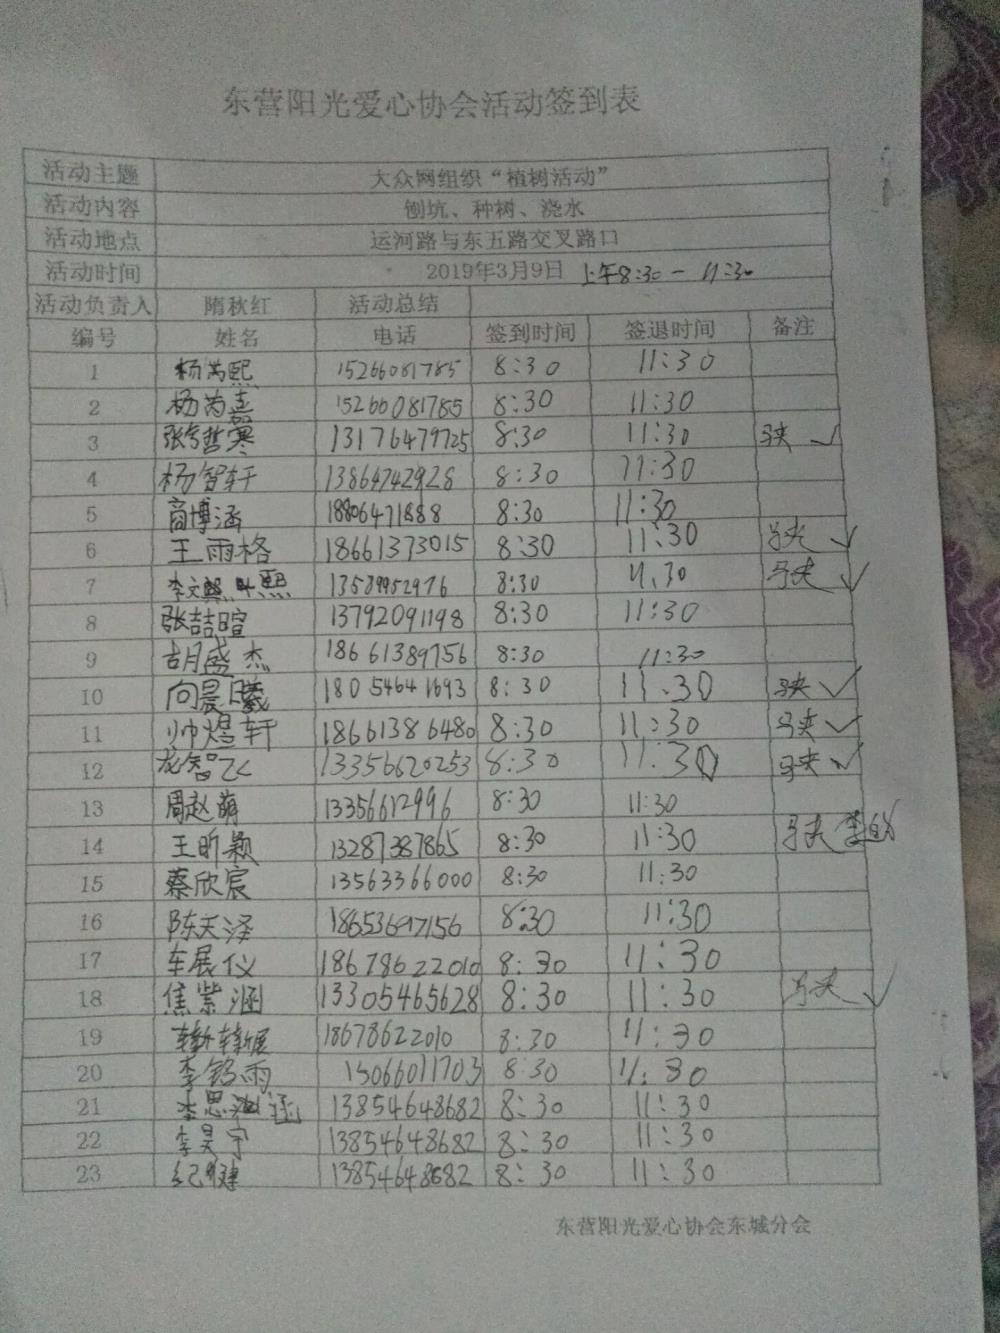 东营阳光爱心协会活动签到表
活动主题 大众网组织“植树活动”
活动内容 刨坑、种树、浇水
活动地点 运河路与东五路交叉路口
活动时间 2019年3月9日 上午8:30-11:30
活动负责人 隋秋红 活动总结
编号 姓名 电话 签到时间 签退时间 备注
1 杨芮熙 15266081785 8:30 11:30
2 杨芮 15266081785 8:30 11:30
3 张 哲 13176479725 8:30 11:30 马夹 ✓
4 杨智轩 13864742928 8:30 11:30
5 商博涵 18806471888 8:30 11:30
6 王雨格 18661373015 8:30 11:30 马夹 ✓
7 李文熙 13589952976 8:30 11.30 马夹 ✓
8 张喆暄 13792091198 8:30 11:30
9 胡盛杰 18661389756 8:30 11:30
10 向晨曦 18054641693 8:30 11.30 马夹 ✓
11 帅煜轩 18661386480 8:30 11:30 马夹 ✓
12 龙智飞 13356620253 8:30 11:30 马夹 ✓
13 周赵萌 13356612996 8:30 11:30
14 王昕颖 13287387865 8:30 11:30 马夹
15 蔡欣宸 13563366000 8:30 11:30
16 陈天泽 18653697156 8:30 11:30
17 车展仪 18678622010 8:30 11:30
18 焦紫涵 13305465628 8:30 11:30 马夹 ✓
19 18678622010 8:30 11:30
20 李 雨 15066011703 8:30 11:30
21 李思涵 13854648682 8:30 11:30
22 李昊宇 13854648682 8:30 11:30
23 纪健 13854648682 8:30 11:30
东营阳光爱心协会东城分会